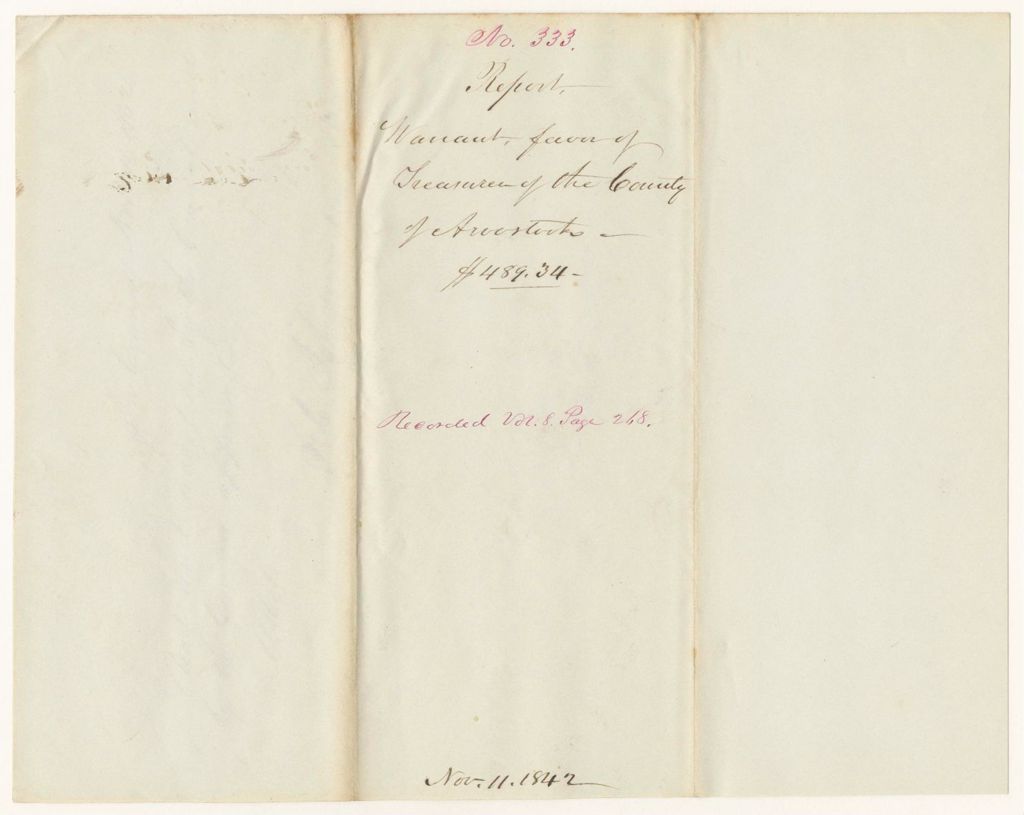 No. 333.
Report,
Warrant, favor of
Treasurer of the County
of Aroostook -
$489.34-
Recorded Vol. 8. Page 268.
Nov. 11. 1842